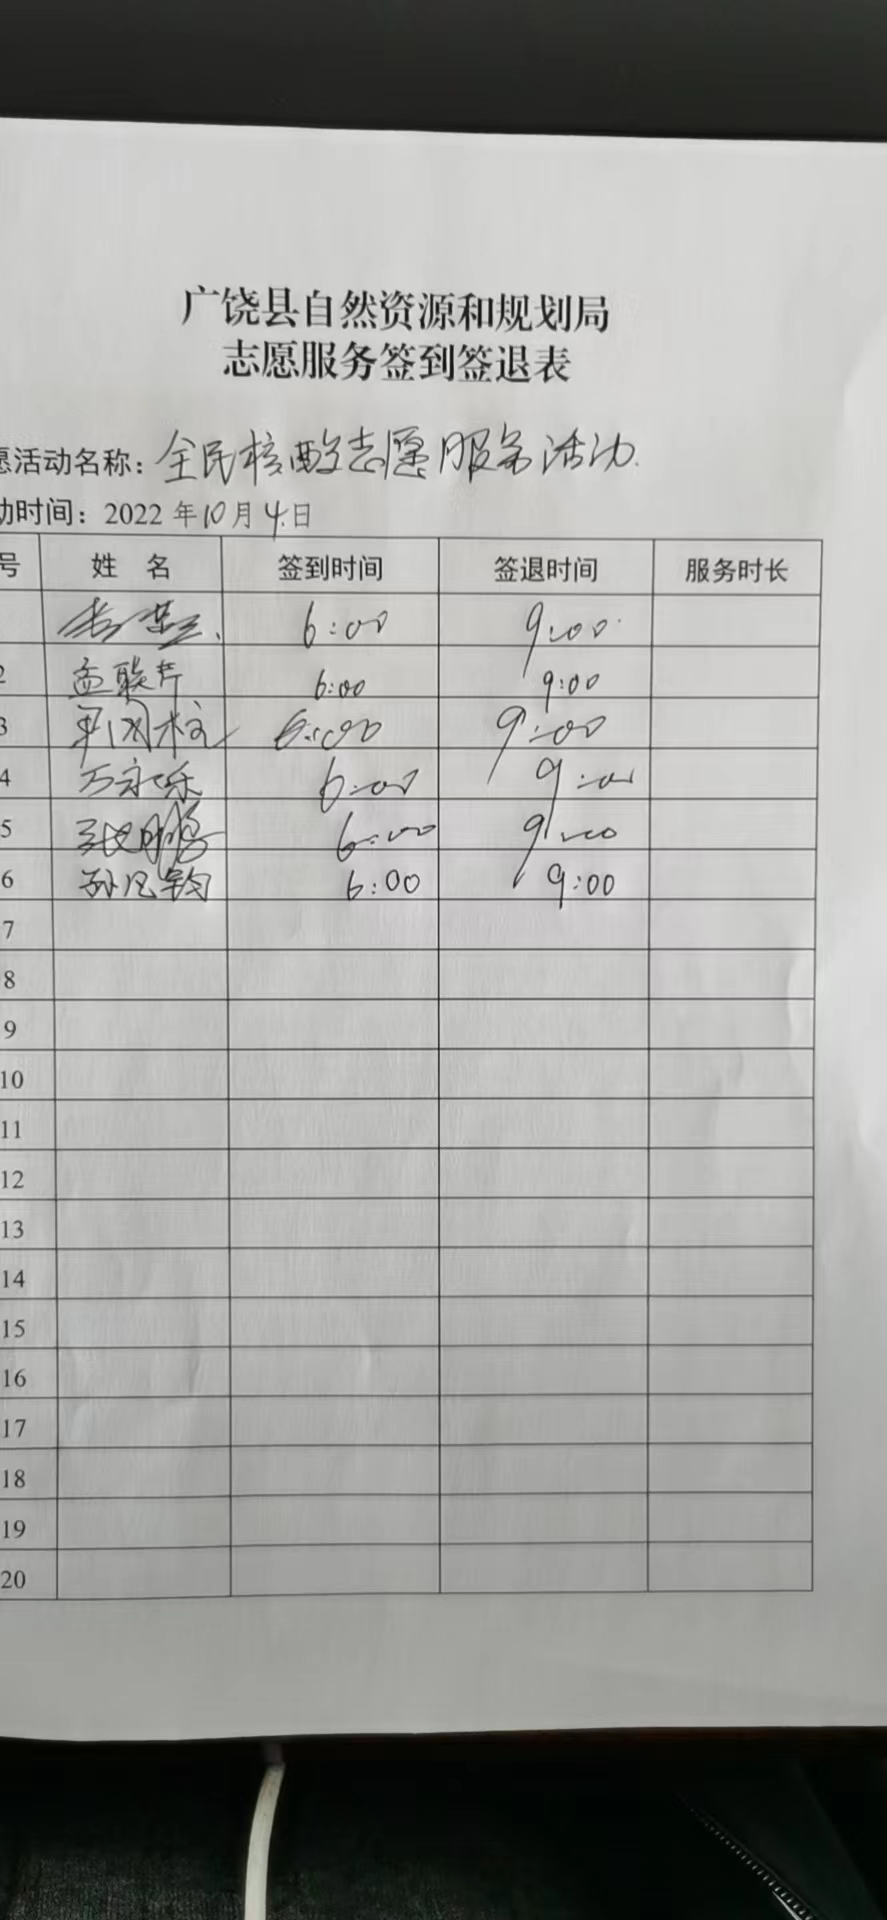 广饶县自然资源和规划局
志愿服务签到签退表
愿活动名称：全民核酸志愿服务活动.
动时间：2022 年10月4日
号 姓 名 签到时间 签退时间 服务时长
6:00 9:00
2 孟联芹 6:00 9:00
3 6:00 9:00
4 万永乐 6:00 9:00
5 张鹏 6:00 9:00
6 孙凡钧 6:00 9:00
7
8
9
10
11
12
13
14
15
16
17
18
19
20